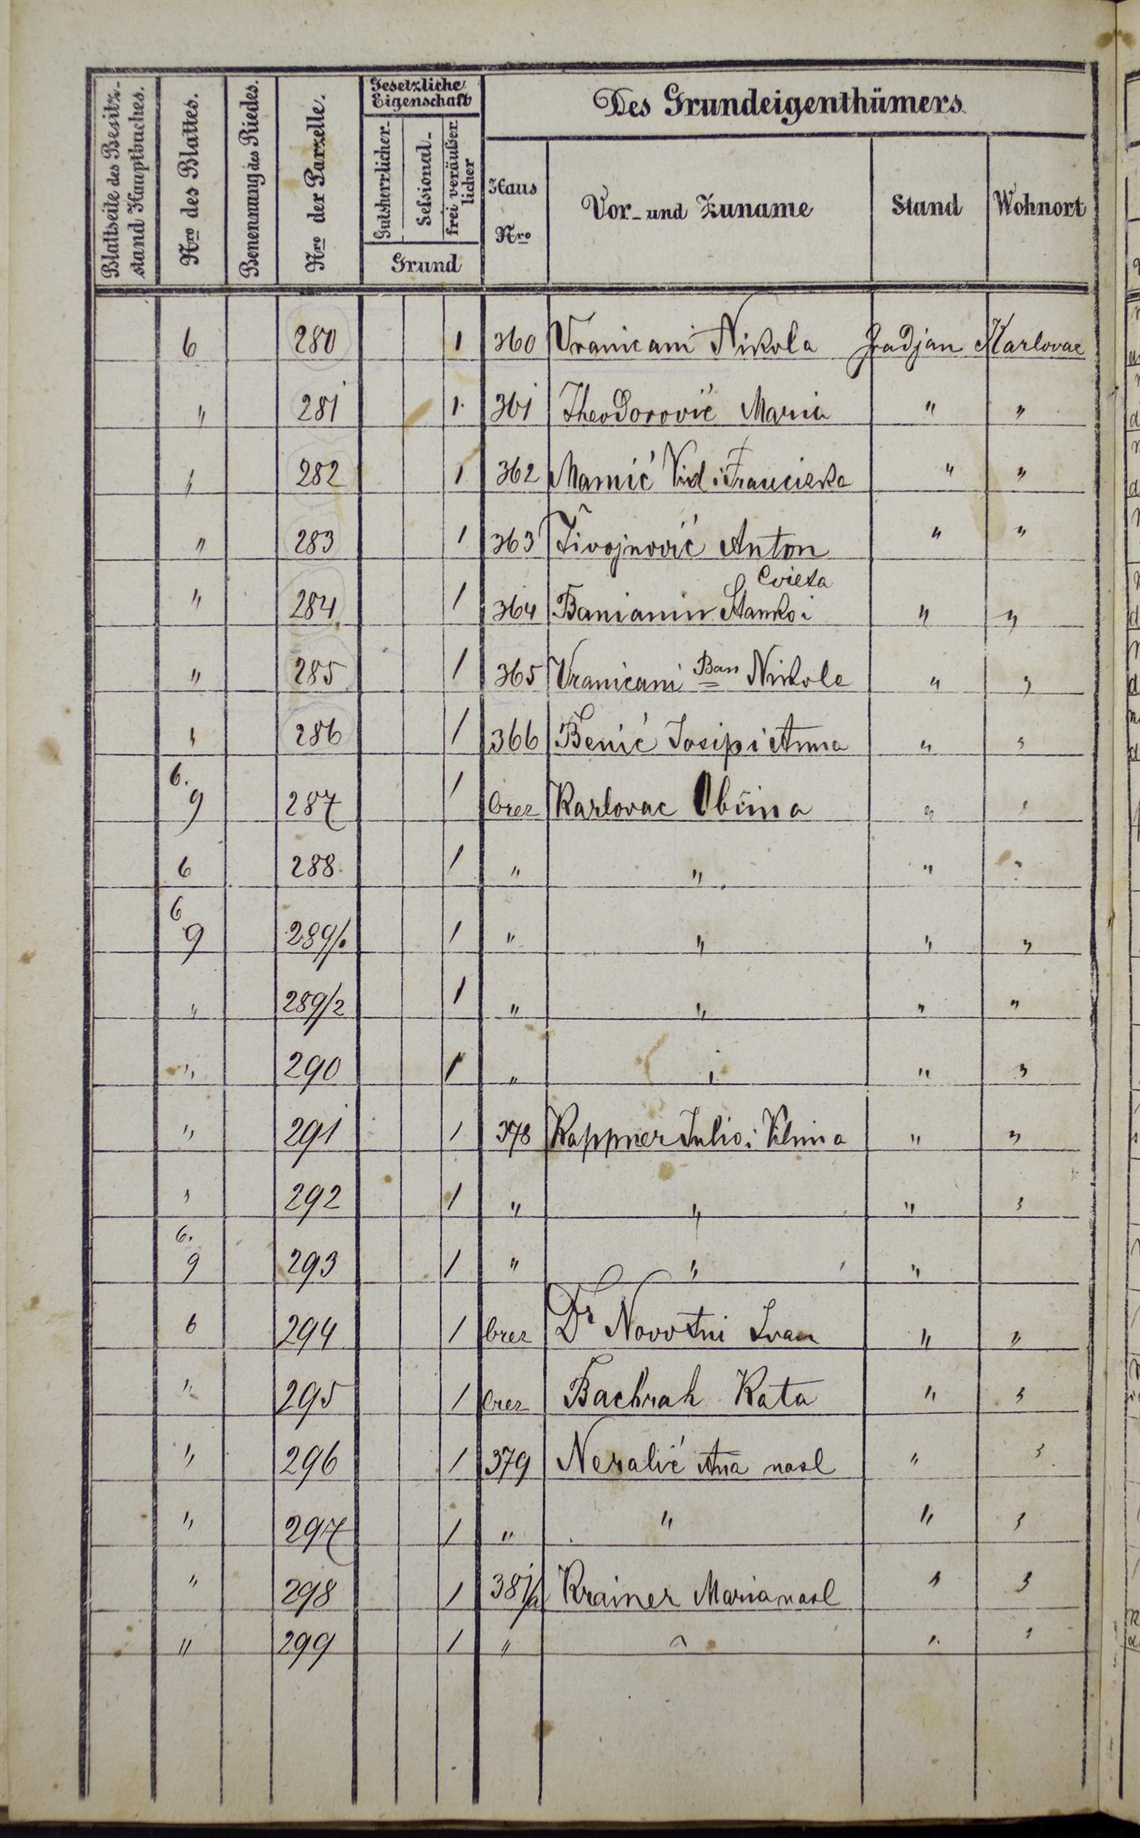 Blattseite des Besitz-stand Hauptbuches. Nro des Blattes. Benennung des Riedes. Nro der Parzelle. Gesetzliche Eigenschaft Des Grundeigenthümers
Gutsherrlicher- Sessional- frei veräußer licher Haus Nro Vor- und Zuname Stand Wohnort
Grund
6 280 1 360 Vranicani Nikola Gradjan Karlovac
" 281 1 361 Theodorović Maria " "
" 282 1 362 Mamić Vid i Franciska " "
" 283 1 363 Živojnović Anton " "
Cvieta
" 284 1 364 Baniamin Stanko i " "
" 285 1 365 Vranicani Bar Nikola " "
" 286 1 366 Benić Josip i Anna " "
6.
9 287 1 brez Karlovac Obćina " "
6 288 1 " " " "
6
9 289/1 1 " " " "
" 289/2 1 " " " "
" 290 1 " " " "
" 291 1 378 Kappner Julio i Vilma " "
" 292 1 " " " "
6.
9 293 1 " " "
6 294 1 brez Dr Novotni Ivan " "
" 295 1 brez Bachrah Kata " "
" 296 1 379 Neralić Ana nasl " "
" 297 1 " " " "
" 298 1 381/a Krainer Maria nasl " "
" 299 1 " " " "